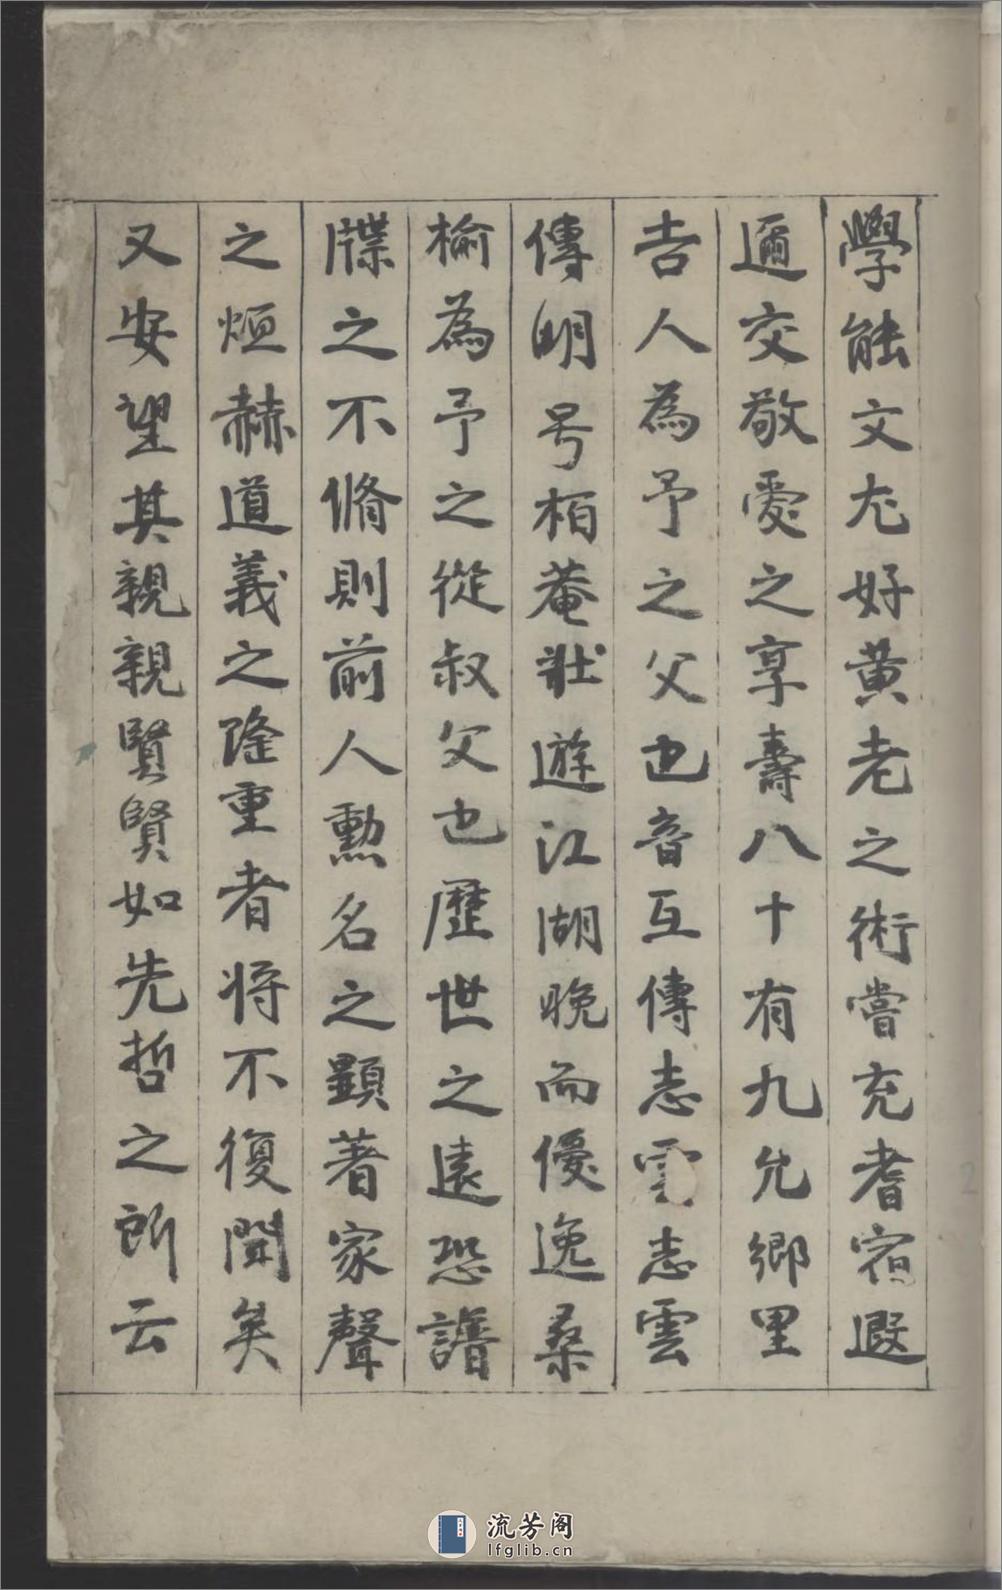 學能文尤好黄老之術嘗充耆宿遐
邇交敬愛之享壽八十有九允鄉里
吉人為予之父也音互傳志雲志雲
傳明号栢菴壯遊江湖晚而優逸桑
榆為予之從叔父也歷世之遠恐譜
牒之不脩則前人勳名之顯著家聲
之烜赫道義之隆重者将不復聞矣
又安望其親親賢賢如先哲之所云
流芳阁
lfglib.cn